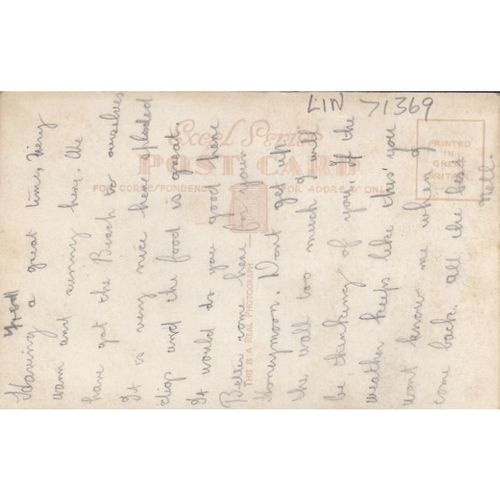 LIN 71369
Excel Series
POST CARD
FOR CORRESPONDENCE
FOR ADDRESS ONLY
PRINTED
IN
GREAT
BRITAIN
THIS IS A REAL PHOTOGRAPH
Fred
Having a great time, very
warm and sunny here. We
have got the Beach to ourselves
It is very nice here, sploded
digs and the food is great.
It would do you good here
Better come here for your
Honeymoon. Dont get up
the wall too much, I will
be thinking of you. If the
weather keeps like this you
wont know me when I
come back. All the best
Nell